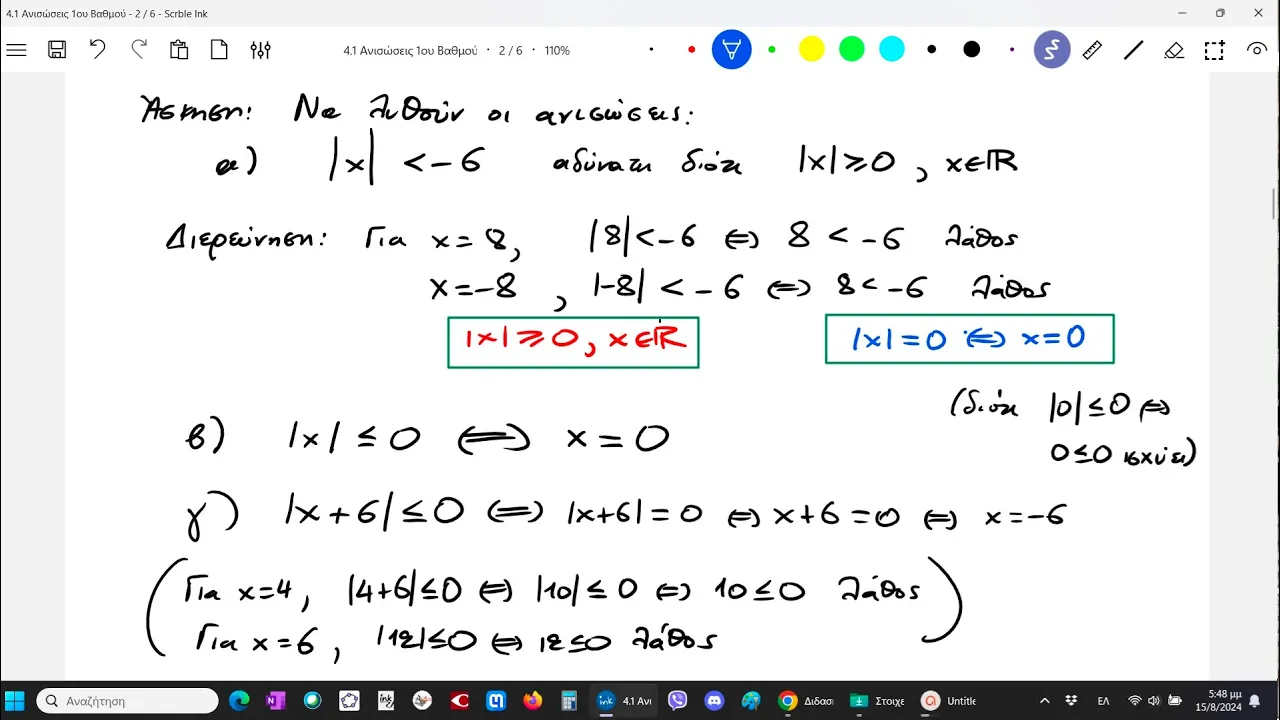 4.1 Ανισώσεις 1ου Βαθμού - 2 / 6 - Scrble Ink
4.1 Ανισώσεις 1ου Βαθμού • 2 / 6 • 110%
Άσκηση: Να λυθούν οι ανισώσεις:
α) |x| < -6 αδύνατη διότι |x| ≥ 0, x∈ℝ
Διερεύνηση: Για x = 8, |8| < -6 ⇔ 8 < -6 λάθος
x = -8, |-8| < -6 ⇔ 8 < -6 λάθος
|x| ≥ 0, x∈ℝ |x| = 0 ⇔ x = 0
(διότι |0| ≤ 0 ⇔
0 ≤ 0 ισχύει)
β) |x| ≤ 0 ⇔ x = 0
γ) |x + 6| ≤ 0 ⇔ |x+6| = 0 ⇔ x+6 = 0 ⇔ x = -6
(Για x=4, |4+6| ≤ 0 ⇔ |10| ≤ 0 ⇔ 10 ≤ 0 λάθος
Για x = 6, |12| ≤ 0 ⇔ 12 ≤ 0 λάθος)
Αναζήτηση 4.1 Ανι Διδασι Στοιχε Untitle ΕΛ 5:48 μμ
15/8/2024